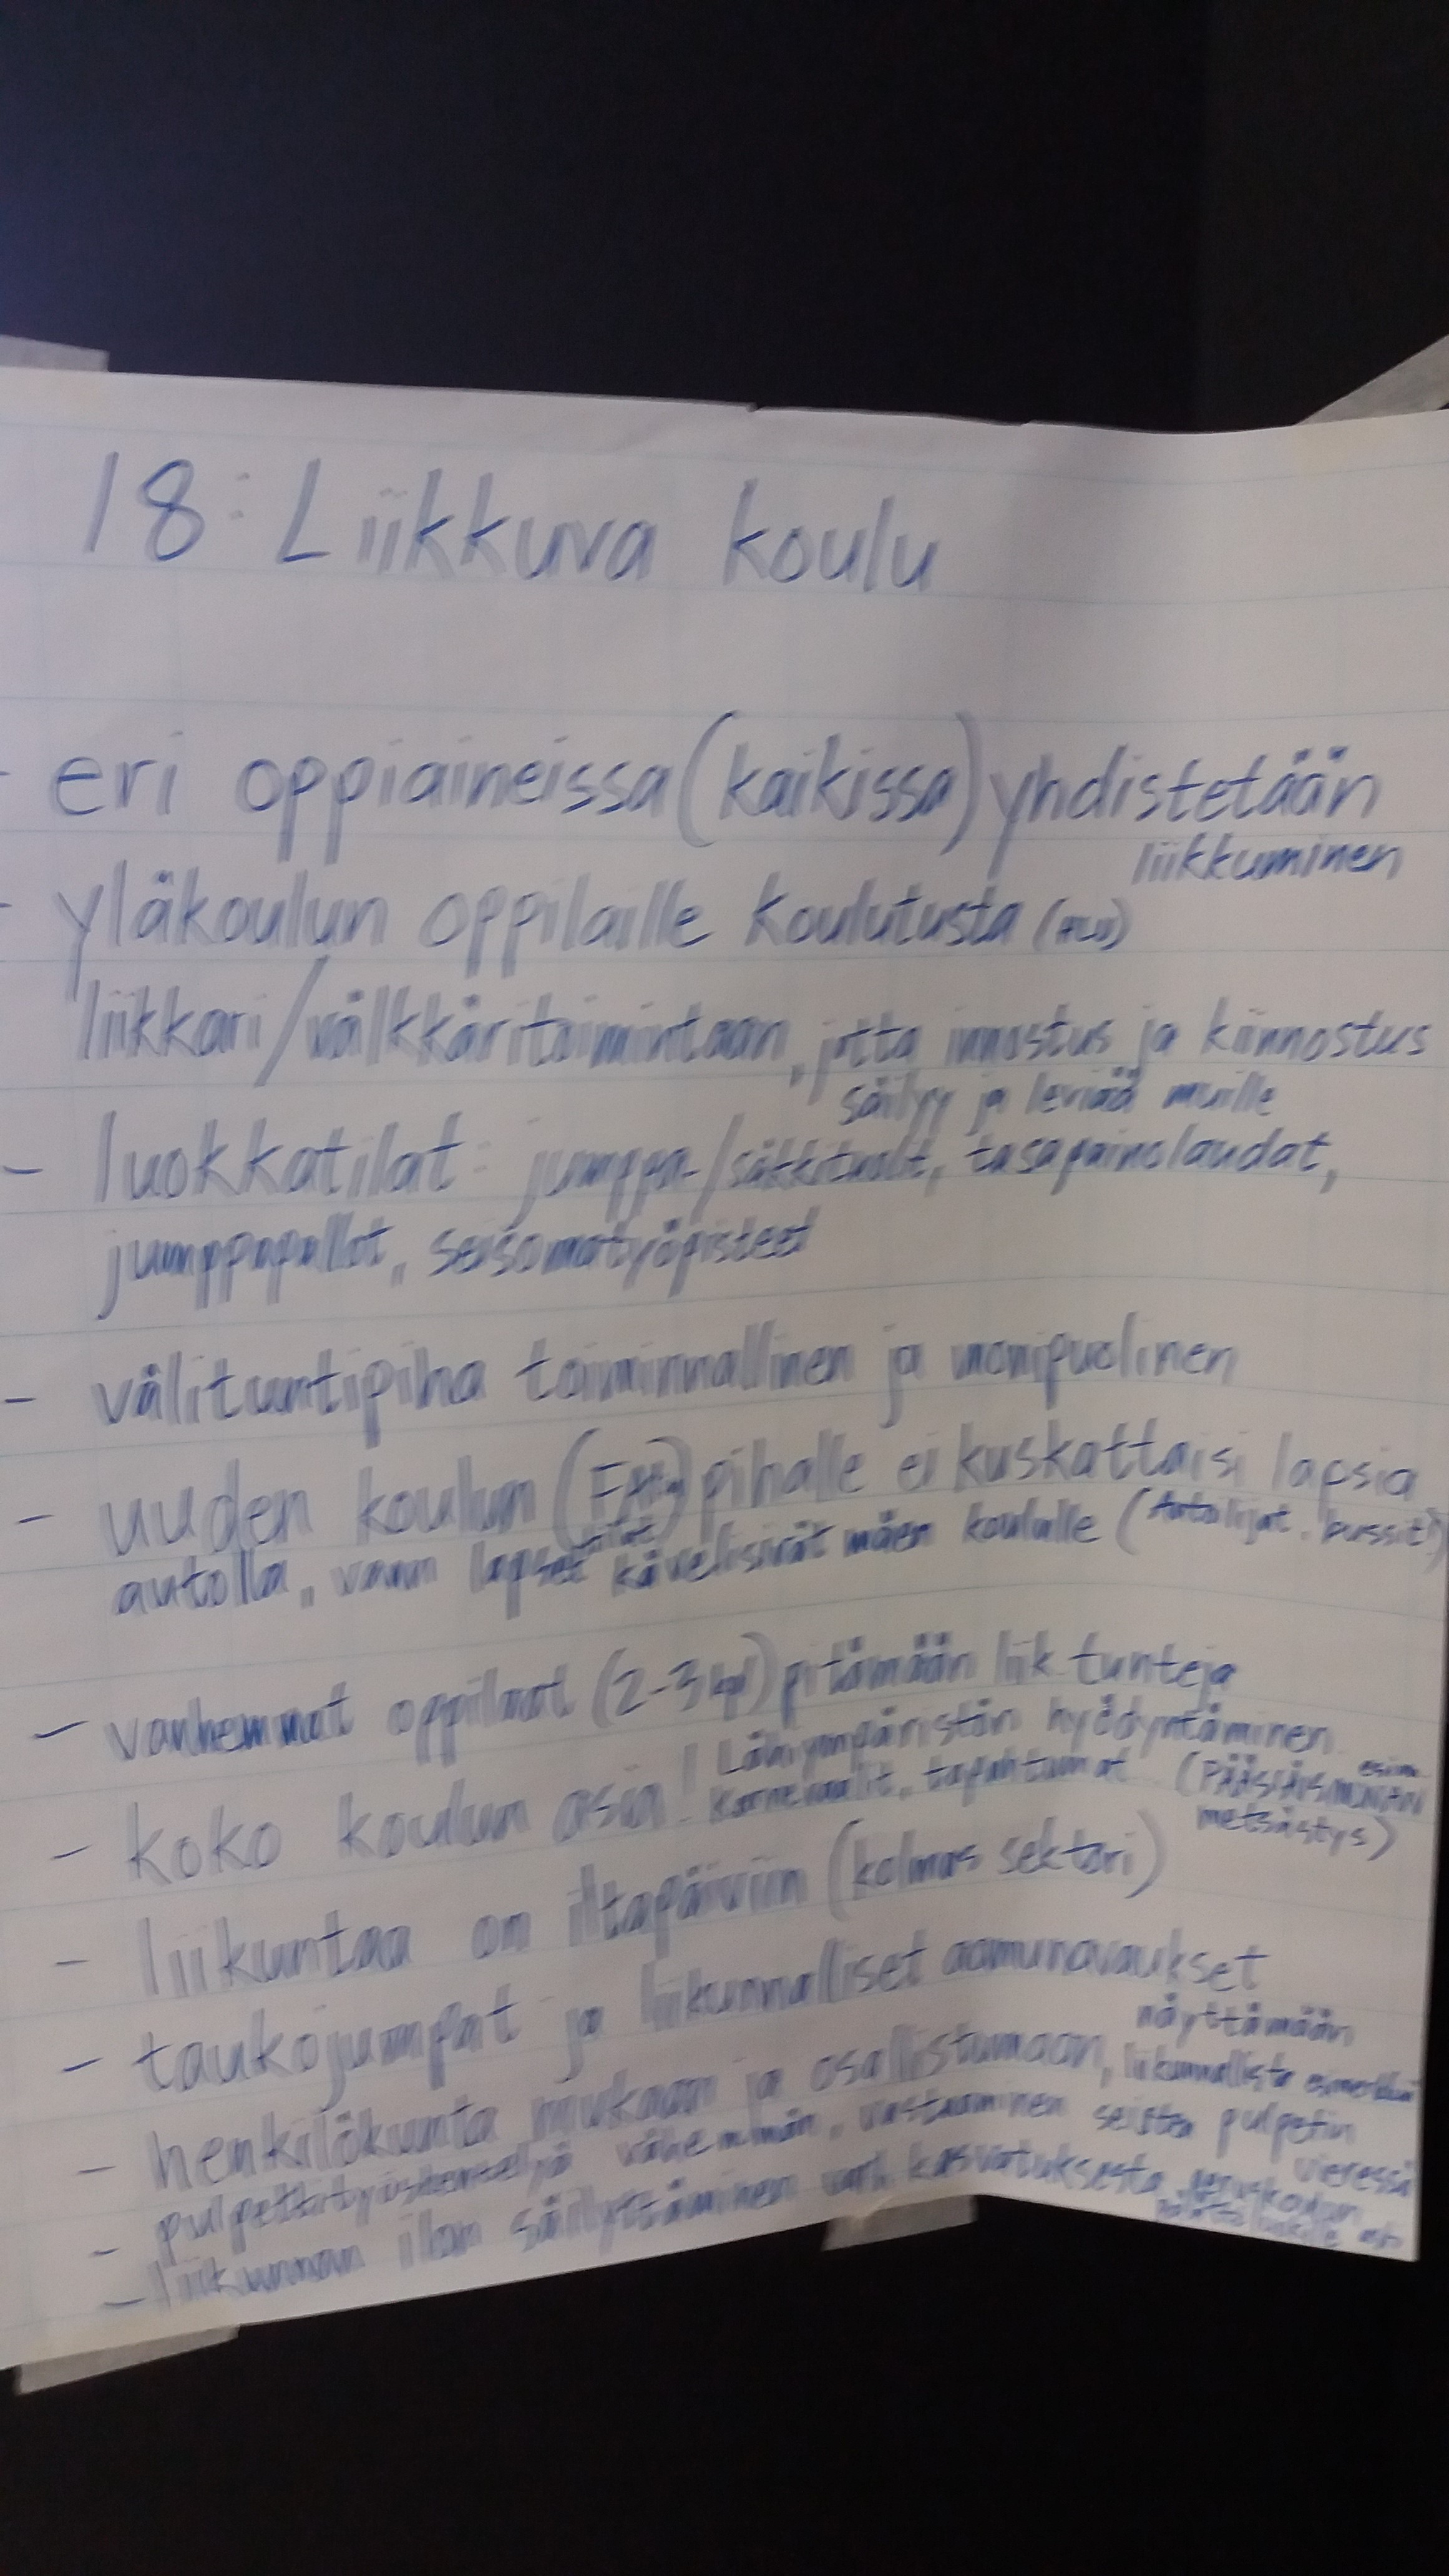 18: Liikkuva koulu
- eri oppiaineissa (kaikissa) yhdistetään
liikkuminen
- yläkoulun oppilaille koulutusta
liikkari/välkkäritoimintaan, jotta innostus ja kiinnostus
säilyy ja leviää muille
- luokkatilat: jumppa-/säkkituolit, tasapainolaudat,
jumppapallot, seisomatyöpisteet
- välituntipiha toiminnallinen ja monipuolinen
- uuden koulun pihalle ei kuskattaisi lapsia
autolla, vaan lapset kävelisivät mäen koululle
- vanhemmat oppilaat (2-3 kpl) pitämään liik.tunteja
- koko koulun asia! Lähiympäristön hyödyntäminen
karnevaalit, tapahtumat (esim. pääsiäismunan
metsästys)
- liikuntaa on iltapäiviin (kolmas sektori)
- taukojumpat ja liikunnalliset aamunavaukset
- henkilökunta mukaan ja osallistumaan, näyttämään
liikunnallista esimerkkiä
- pulpettityöskentelyä vähemmän, vastaaminen seisten pulpetin
vieressä
- liikunnan ilon säilyttäminen varh.kasvatuksesta peruskoulun